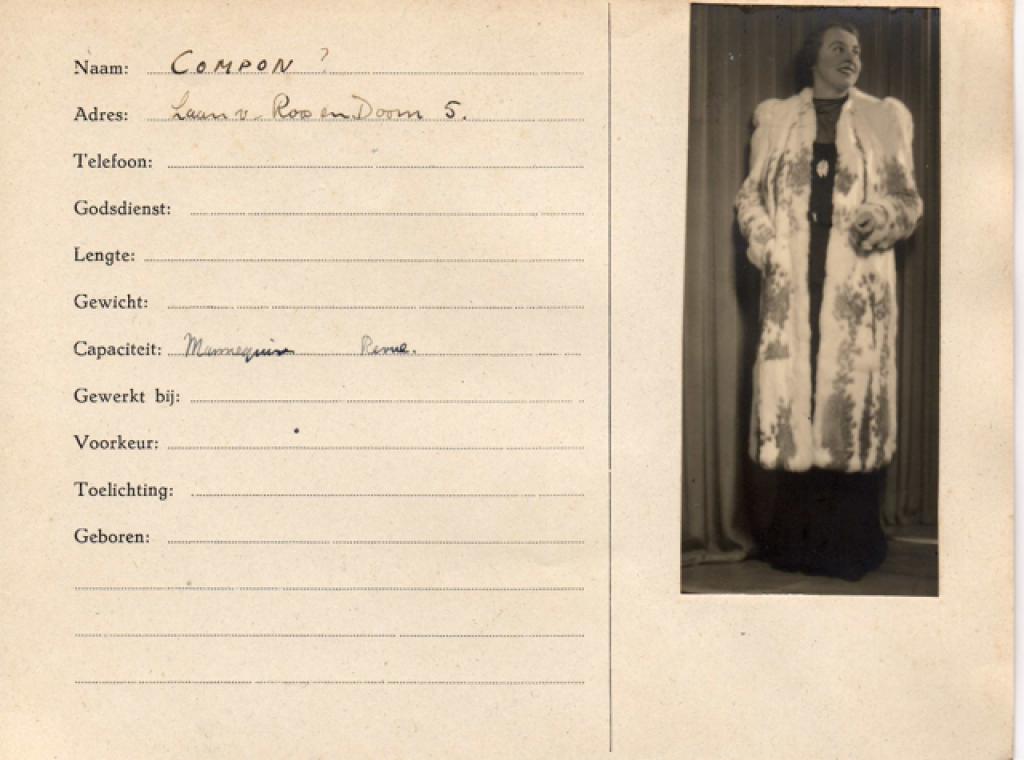 Naam: COMPON ?
Adres: Laan v. Roos en Doorn 5.
Telefoon:
Godsdienst:
Lengte:
Gewicht:
Capaciteit: Mannequin Revue.
Gewerkt bij:
Voorkeur:
Toelichting:
Geboren: